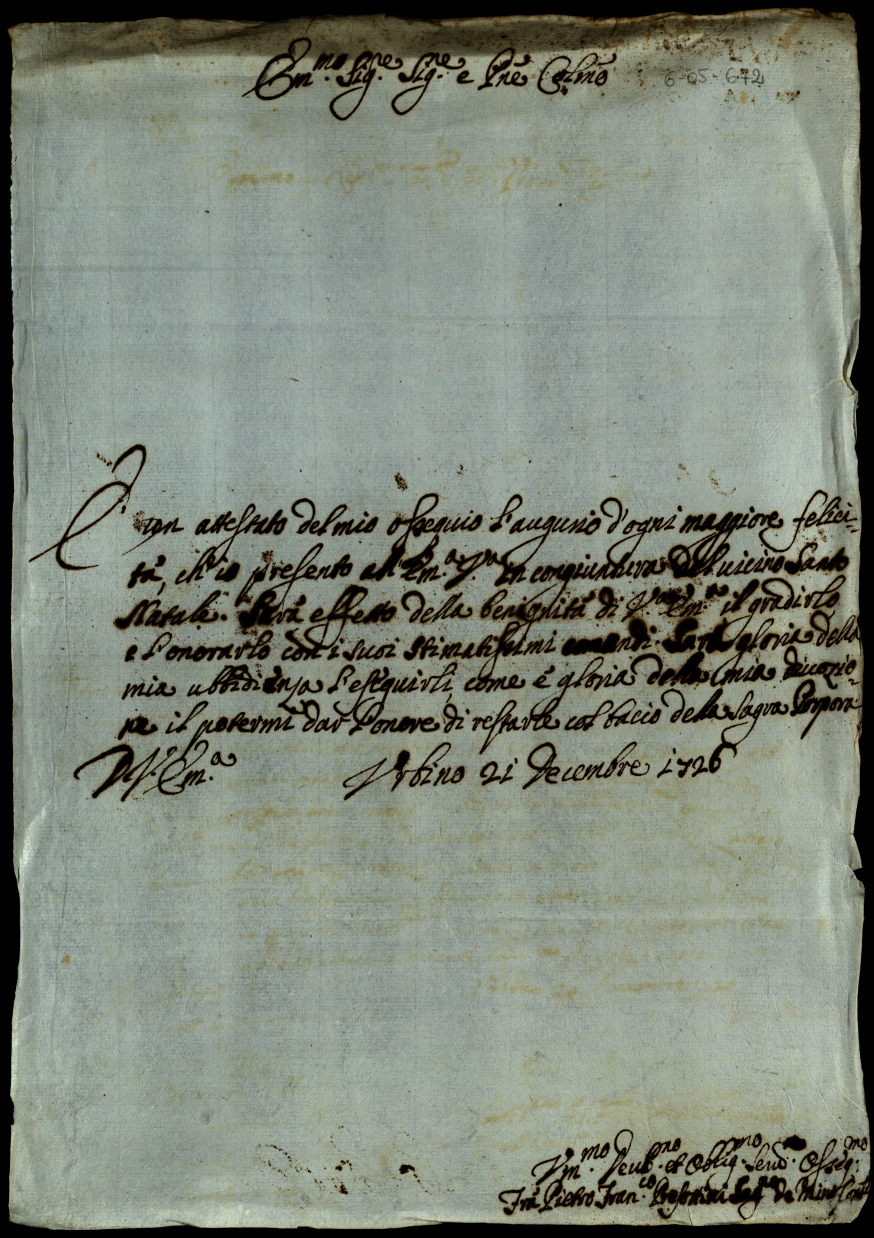 Em.mo Sig.re Sig.re e Pne Colmo
6-05-672
E' un attestato del mio ossequio l'augurio d'ogni maggiore felici-
tà, ch'io presento all'Em.a V.a in congiuntura del vicino Santo
Natale. Sarà effetto della benignità di V.ra Em.a il gradirlo
e l'onorarlo con i suoi stimatissimi comandi. Sarà gloria della
mia ubbidienza l'eseguirli, come è gloria della mia divozio-
ne il potermi dar l'onore di restarle col bacio della Sagra Porpora
D. V. Em.a Urbino 21 Decembre 1726
Um.mo Devot.mo et Oblig.mo Serv. Osseq.mo
Fra Pietro Fran.co de Min. Conv.